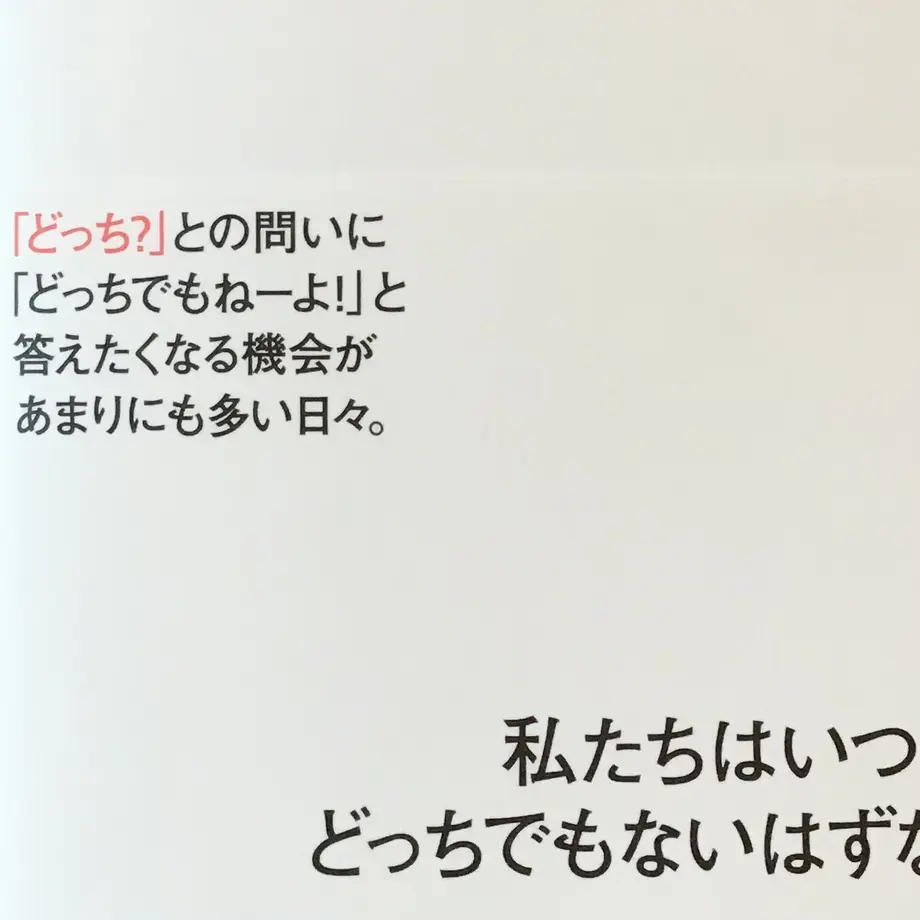 「どっち?」との問いに
「どっちでもねーよ!」と
答えたくなる機会が
あまりにも多い日々。
私たちはいつ
どっちでもないはずな